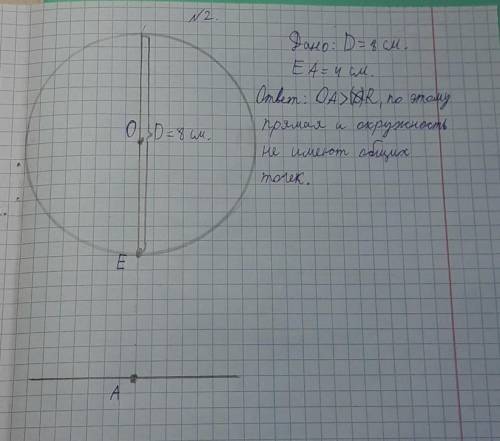 №2.
Дано: D = 8 см.
EA = 4 см.
Ответ: OA > R, по этому
прямая и окружность
не имеют общих
точек.
O D = 8 см.
E
A